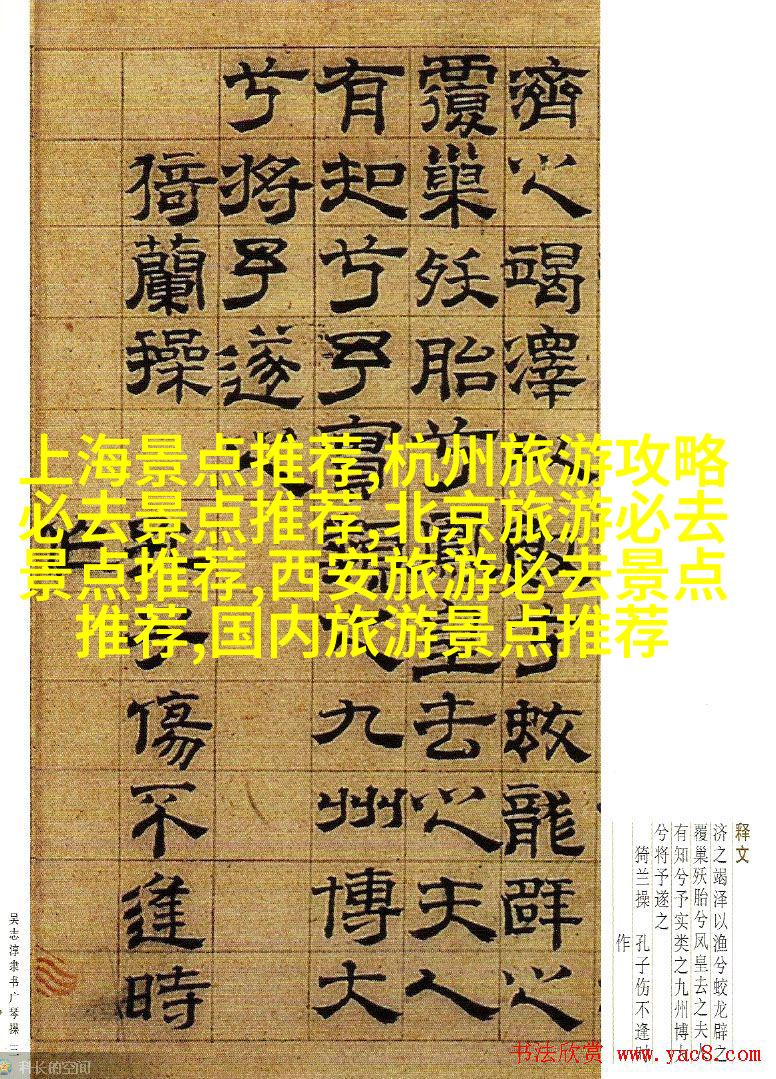 濟之竭澤以漁兮蛟龍辟之
覆巢殀胎兮鳳皇去之夫人
有知兮予實類之九州博大
兮將予遂之
猗蘭操 孔子傷不逢時
作
上海景点推荐,杭州旅游攻略
必去景点推荐,北京旅游必去
景点推荐,西安旅游必去景点
推荐,国内旅游景点推荐
释文
济之竭泽以渔兮蛟龙辟之
覆巢殀胎兮凤皇去之夫
有知兮予实类之九州博
兮将予遂之
猗兰操 孔子伤不逢
作
吴志淳隶书广琴操 三
科长的空间
书法欣赏 www.yac8.com